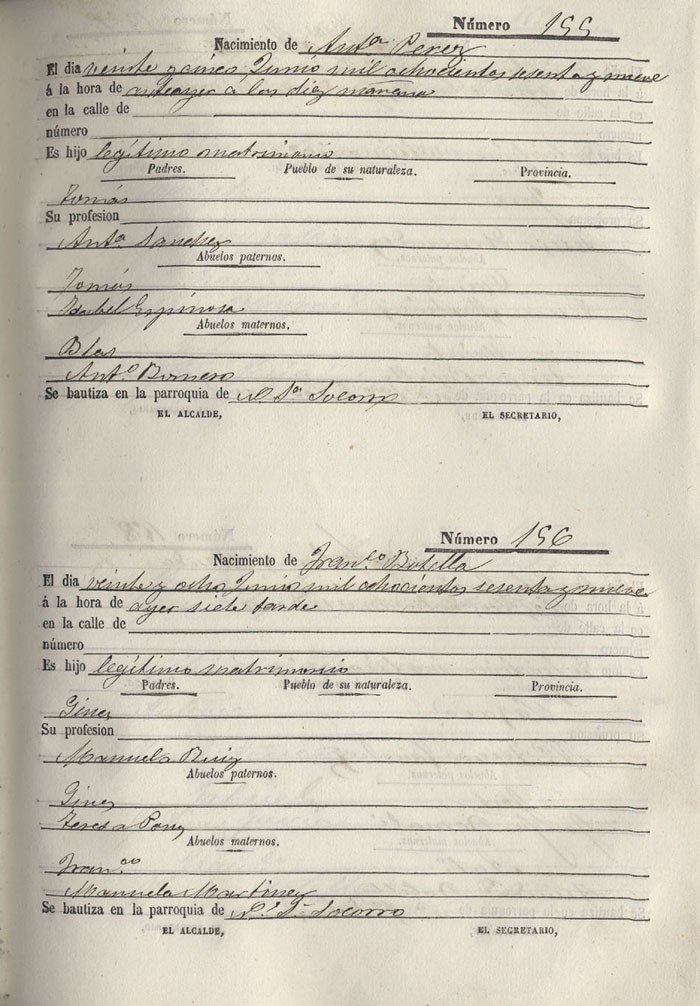 Número 155
Nacimiento de Antª Perez
El dia veinte y cinco Junio mil ochocientos sesenta y nueve
á la hora de anteayer a las diez mañana
en la calle de
número
Es hijo legítimo matrimonio
Padres. Pueblo de su naturaleza. Provincia.
Tomás
Su profesion
Antª Sanchez
Abuelos paternos.
Tomás
Isabel Espinosa
Abuelos maternos.
Blas
Antª Romero
Se bautiza en la parroquia de Nª Sª Socorro
EL ALCALDE, EL SECRETARIO,
Número 156
Nacimiento de Franco Botella
El dia veinte y ocho Junio mil ochocientos sesenta y nueve
á la hora de ayer siete tarde
en la calle de
número
Es hijo legítimo matrimonio
Padres. Pueblo de su naturaleza. Provincia.
Gines
Su profesion
Manuela Ruiz
Abuelos paternos.
Gines
Teresa Pons
Abuelos maternos.
Franco
Manuela Martinez
Se bautiza en la parroquia de Nª Sª Socorro
EL ALCALDE, EL SECRETARIO,